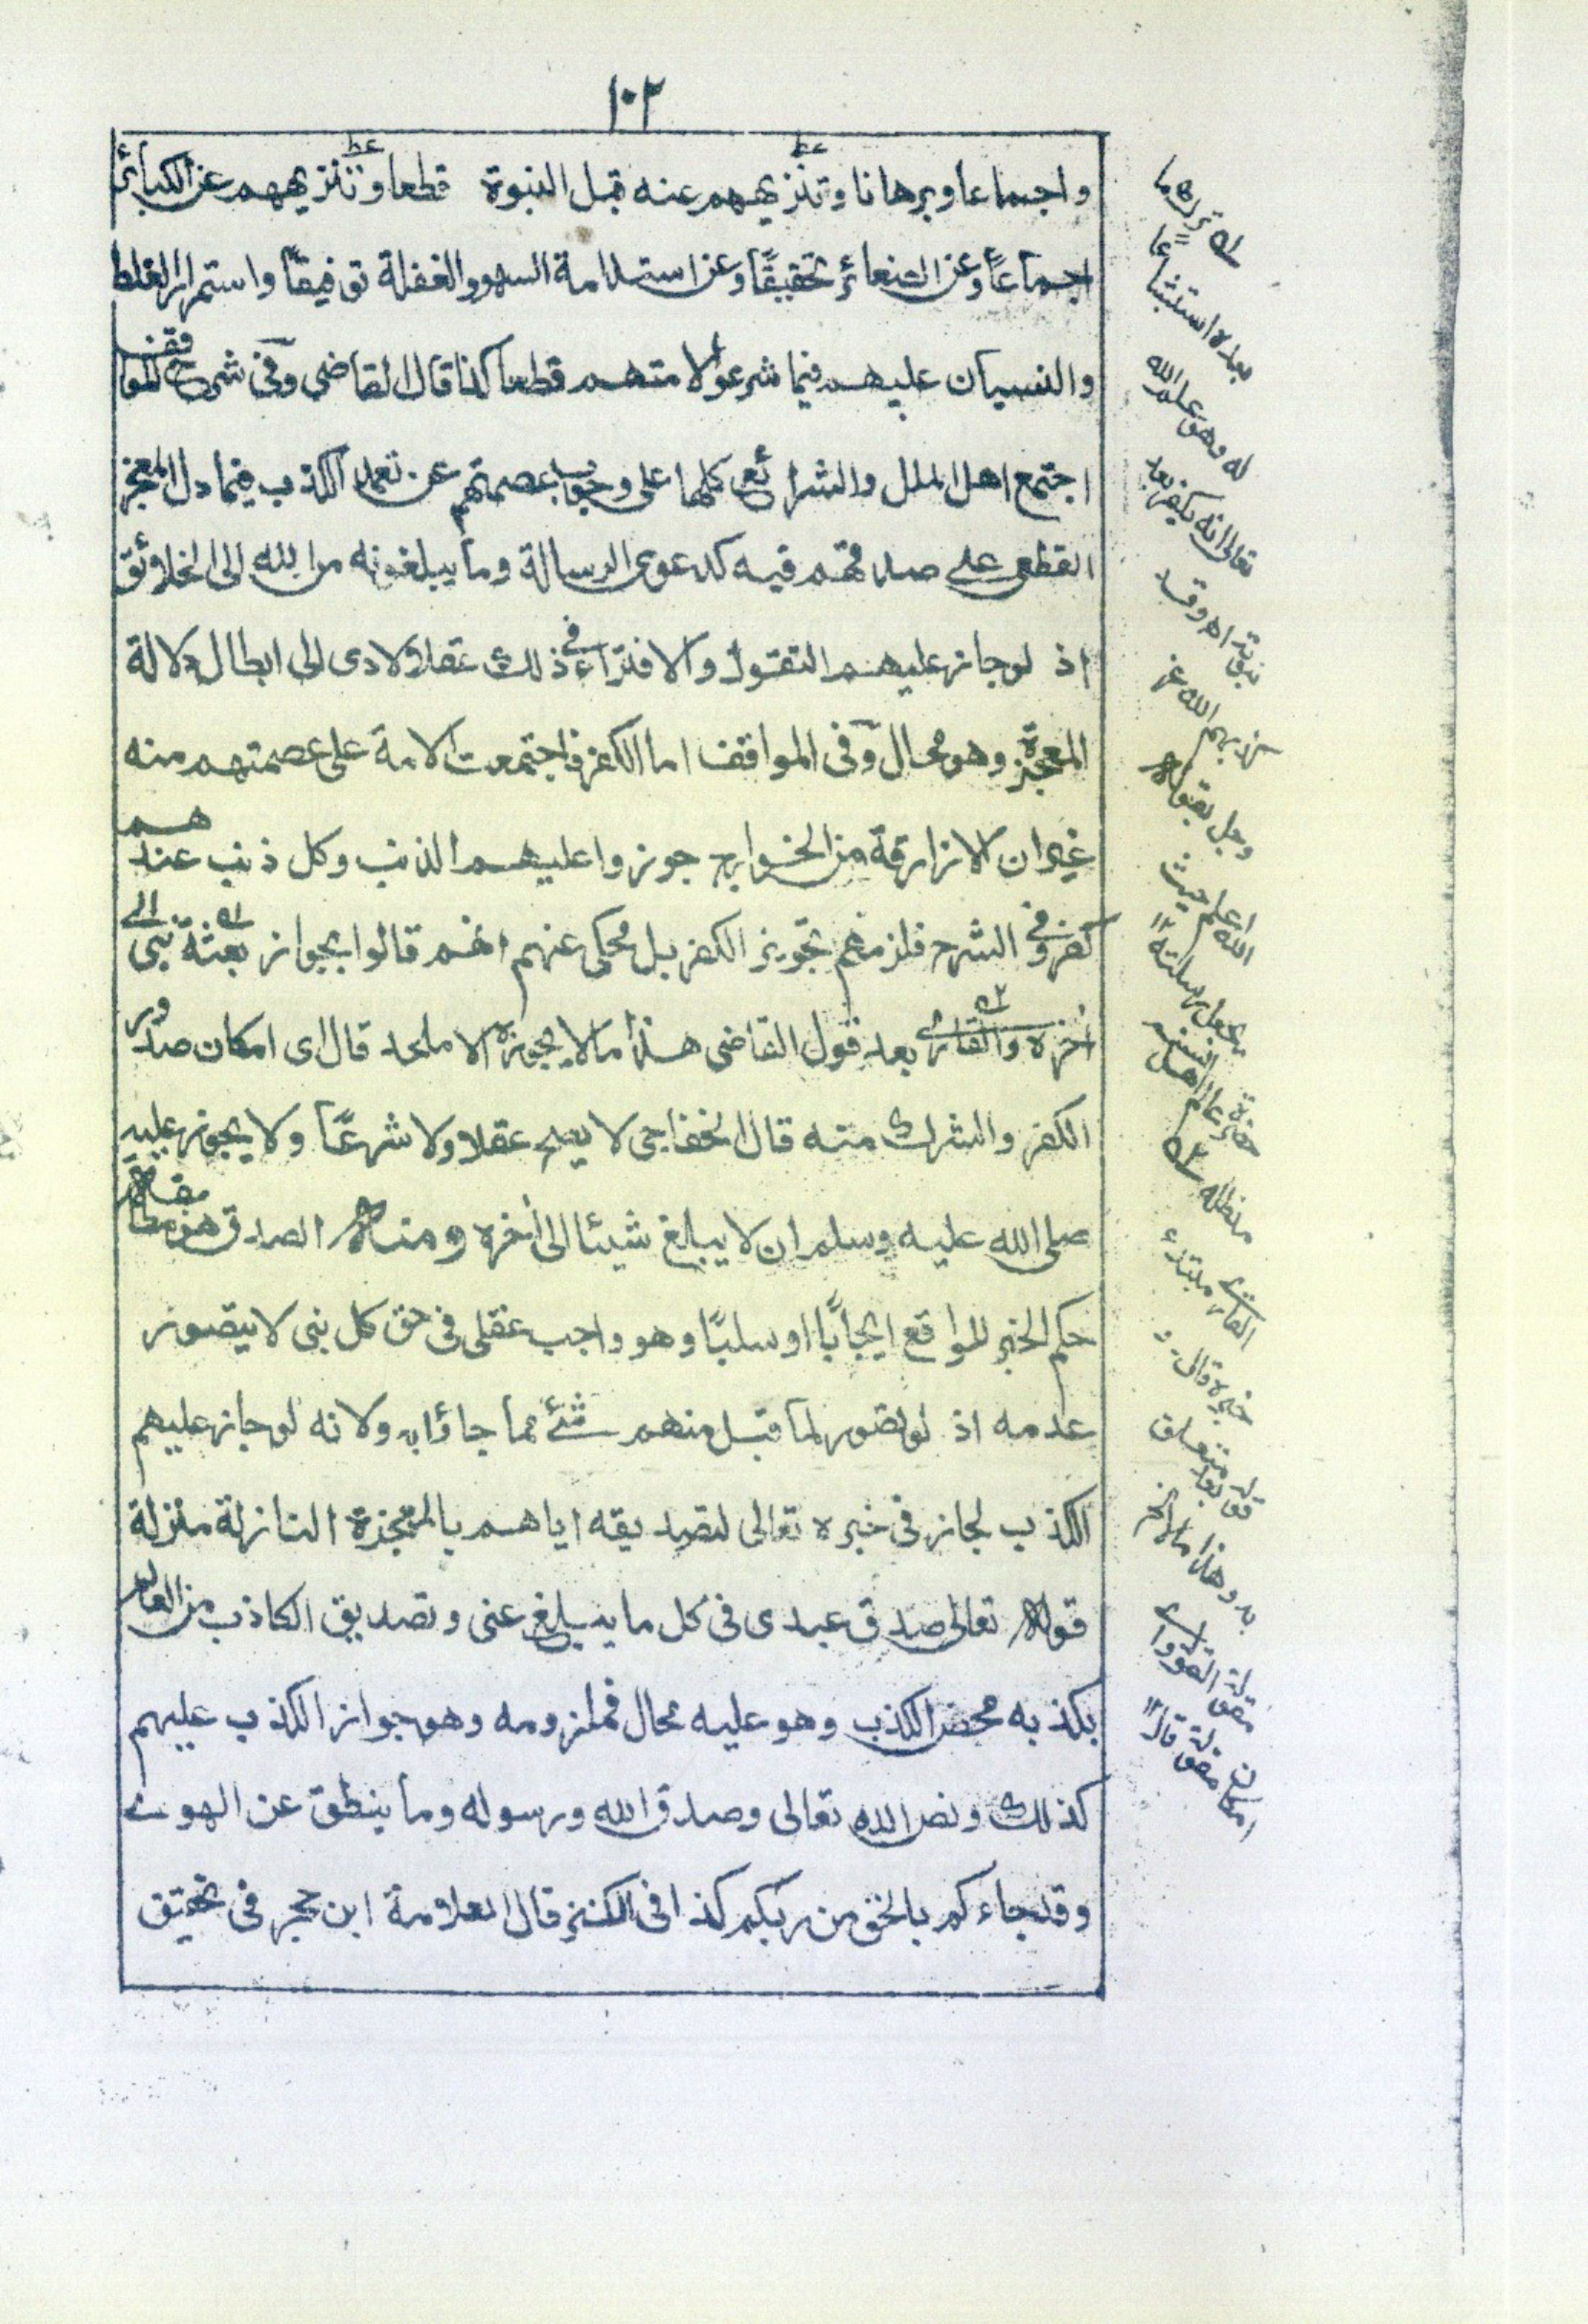 ١٠٢
واجماعا وبرهانا وتنزيههم عنه قبل النبوة قطعا وتنزيههم عن الكبائر
اجماعاً وعن الصغائر تحقيقًا وعن استدامة السهو والغفلة توفيقاً واستمرار الغلط
والنسيان عليهم فيما شرعوا لامتهم قطعا كذا قال القاضى وفى شرح المواقف
اجتمع اهل الملل والشرائع كلها على وجوب عصمتهم عن تعمد الكذب فيما دل المعجز
القطعى على صدقهم فيه كدعوى الرسالة وما يبلغونه من الله الى الخلائق
اذ لوجاز عليهم التقول والافتراء فى ذلك عقلا لادى الى ابطال دلالة
المعجزة وهو محال وفى المواقف اما الكفر فاجتمعت الامة على عصمتهم منه
غير ان الازارقة من الخوارج جوزوا عليهم الذنب وكل ذنب عندهم
كفر وفى الشرح فلزمهم تجويز الكفر بل محكى عنهم انهم قالوا بجواز بعثة نبى الى
أخره والقارى بعد قول القاضى هذا مالا يجوزه الا ملحد قال اى امكان صدور
الكفر والشرك منه قال الخفاجى لا يصح عقلا ولا شرعًا ولا يجوز عليه
صلى الله عليه وسلم ان لا يبلغ شيئا الى أخره ومنه الصدق هو مطابقة
حكم الخبر للواقع ايجابًا او سلبًا وهو واجب عقلى فى حق كل نبى لا يتصور
عدمه اذ لو تصور لما قبل منهم شئ مما جاؤا به ولانه لو جاز عليهم
الكذب لجاز فى خبره تعالى لتصديقه اياهم بالمعجزة النازلة منزلة
قوله تعالى صدق عبدى فى كل ما يبلغ عنى وتصديق الكاذب من العالم
بكذبه محض الكذب وهو عليه محال فملزومه وهو جواز الكذب عليهم
كذلك ونص الله تعالى وصدق الله ورسوله وما ينطق عن الهوى
وقد جاءكم بالحق من ربكم كذا فى الكنز قال العلامة ابن حجر فى تحقيق
بعده استثنا
له وهو علم الله
تعالى انه يكفر بعد
نبوته اھ وقد
وجل بقوله
الله اعلم حيث
يجعل رسالته
مدظله
القارى مبتدء
خبره قال
قوله بعد متعلق
به وهذا مالا الخ
مقولة القول
امكان مقولة قال